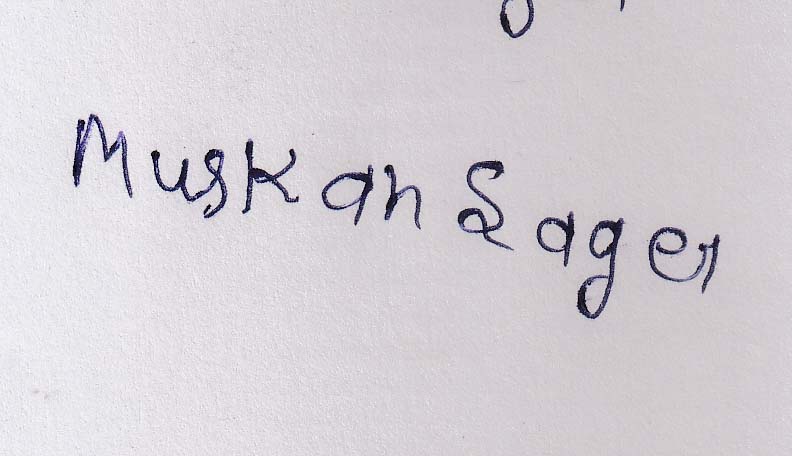 Muskan Sager